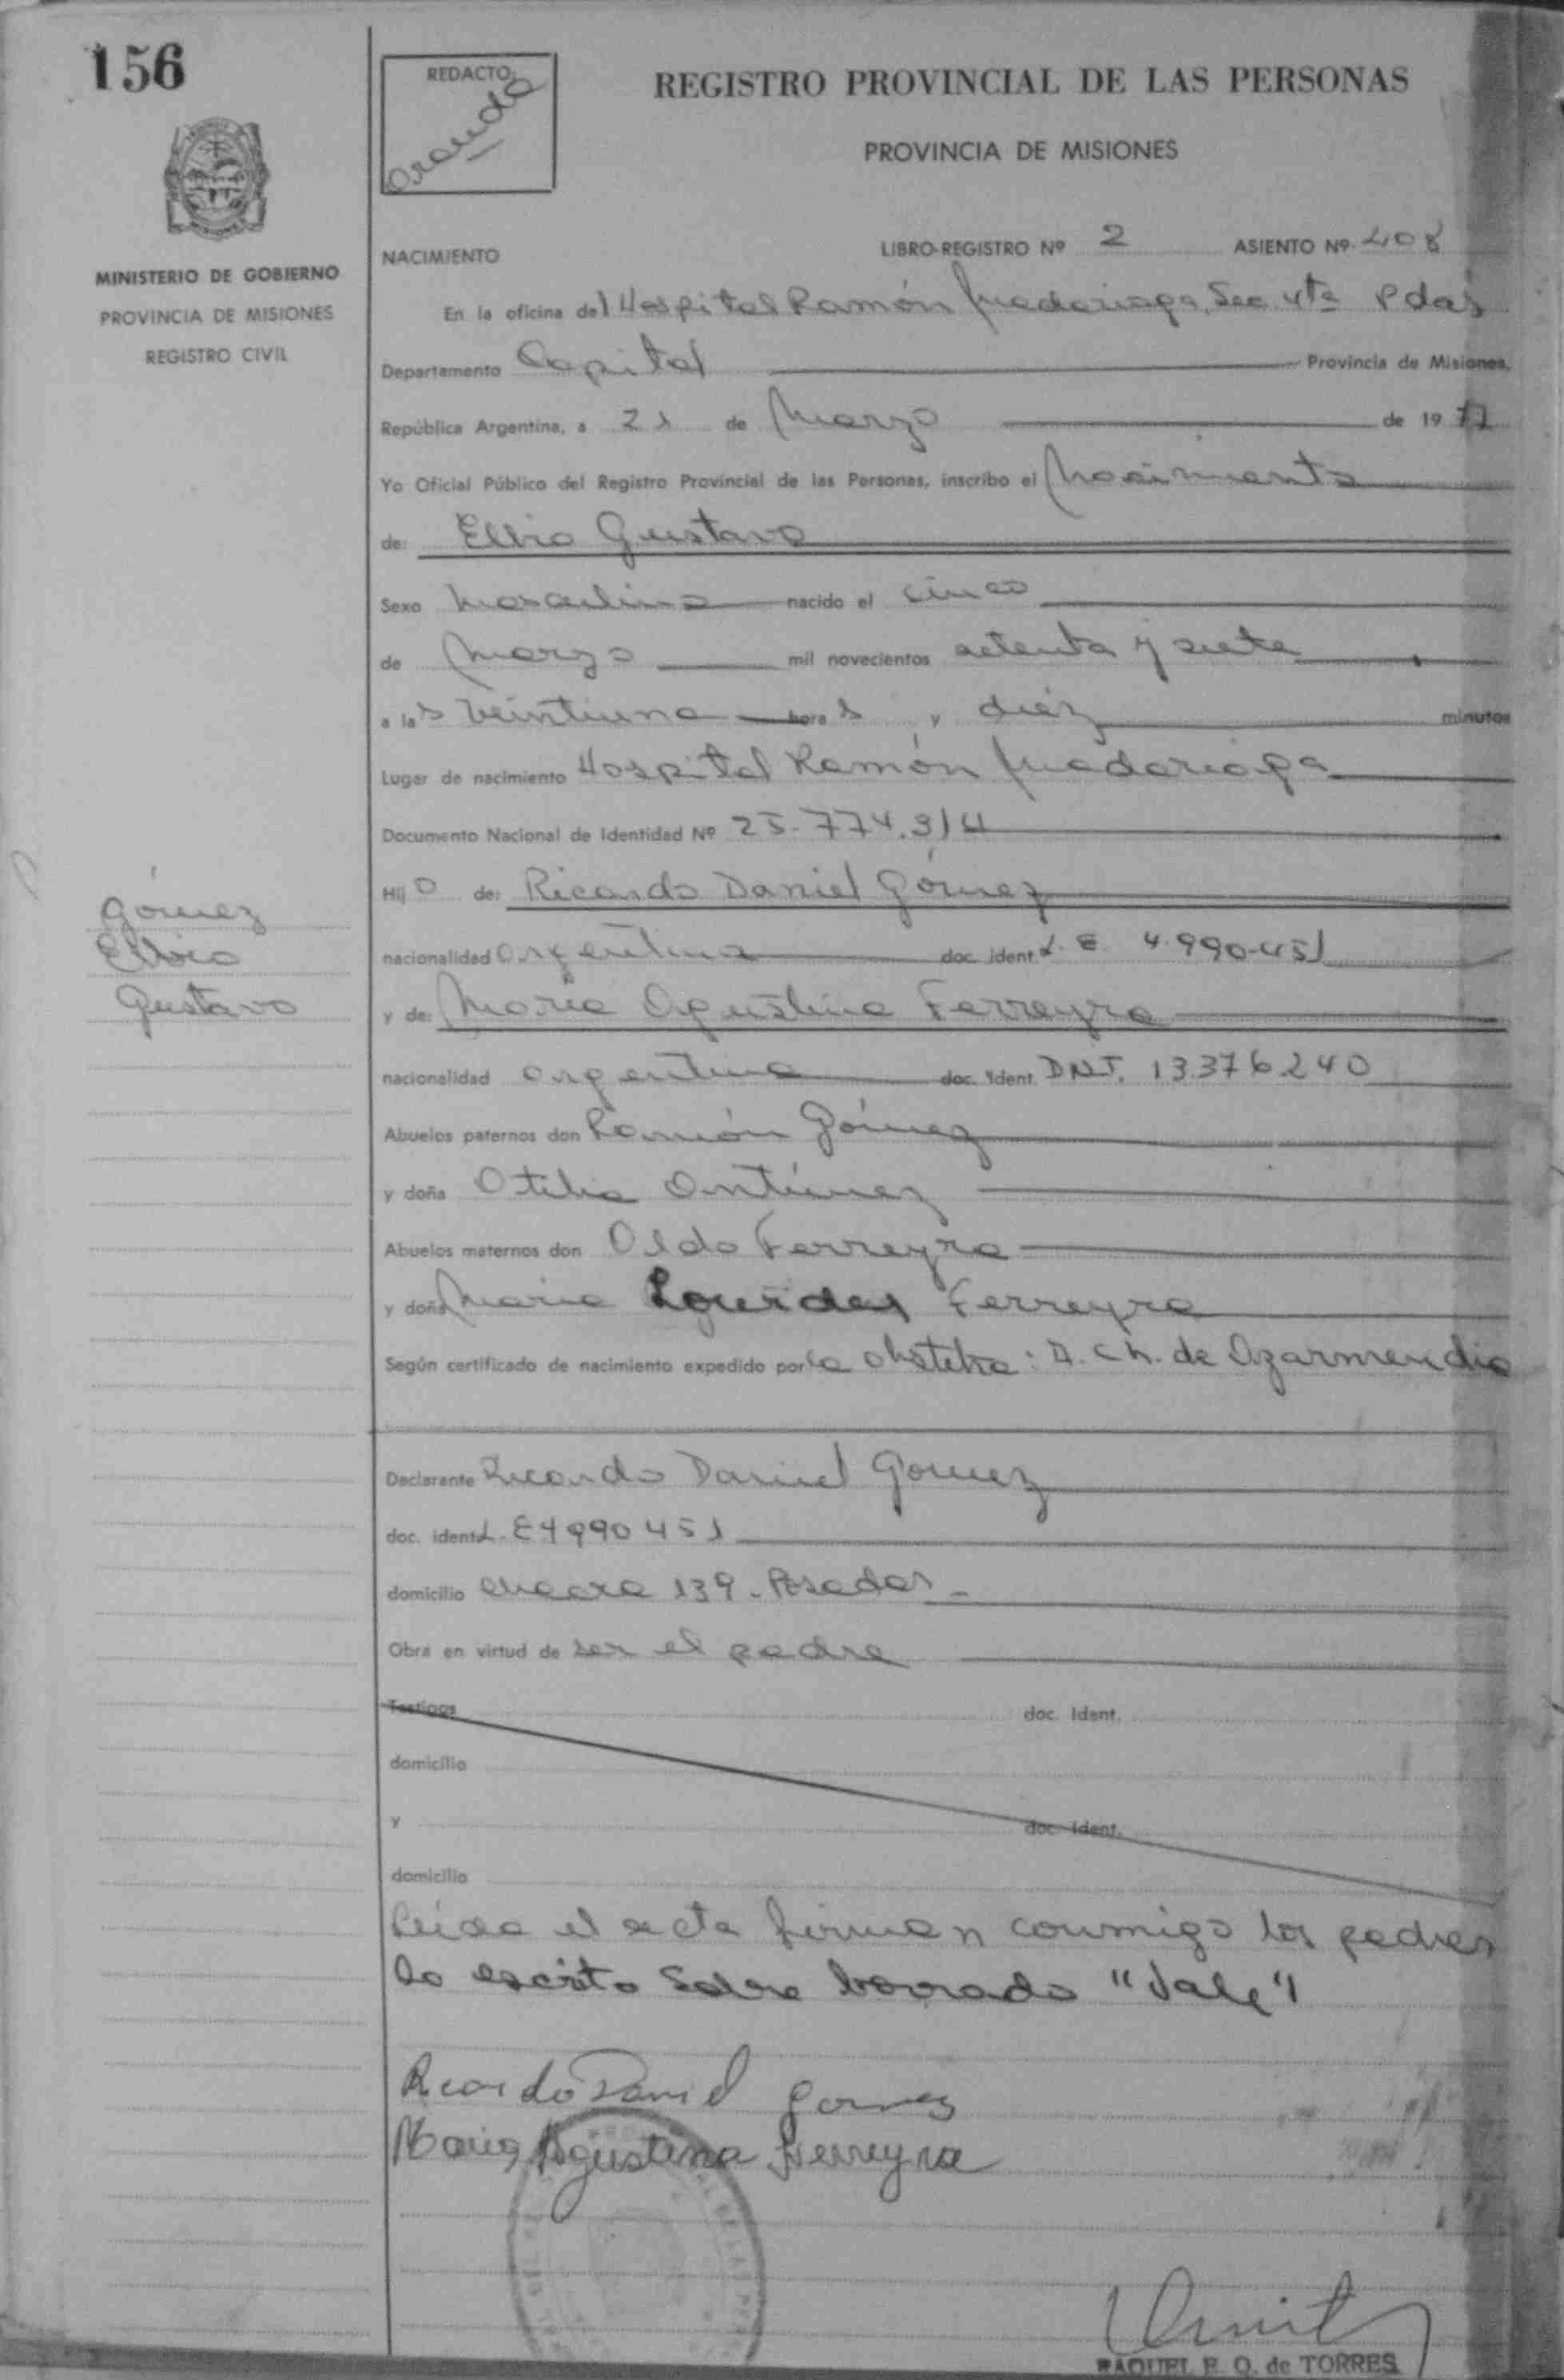 156
REDACTO:
Aranda
REGISTRO PROVINCIAL DE LAS PERSONAS
PROVINCIA DE MISIONES
MINISTERIO DE GOBIERNO
PROVINCIA DE MISIONES
REGISTRO CIVIL
NACIMIENTO
LIBRO-REGISTRO Nº 2 ASIENTO Nº 408
En la oficina del Hospital Ramón Madariaga, Sec. 4ta Pdas
Departamento Capital Provincia de Misiones,
República Argentina, a 21 de Marzo de 1977
Yo Oficial Público del Registro Provincial de las Personas, inscribo el Nacimiento
de: Elbio Gustavo
Sexo Masculino nacido el cinco
de Marzo mil novecientos setenta y siete
a las veintiuna horas y diez minutos
Lugar de nacimiento Hospital Ramón Madariaga
Documento Nacional de Identidad Nº 25.774.314
Hijo de: Ricardo Daniel Gómez
nacionalidad argentina doc. ident. L.E. 4.990.451
y de: María Agustina Ferreyra
nacionalidad argentina doc. Ident. DNI. 13376240
Abuelos paternos don Ramón Gómez
y doña Otilia Antúnez
Abuelos maternos don Oldo Ferreyra
y doña María Lourdes Ferreyra
Según certificado de nacimiento expedido por la obstetra: A. Ch. de Azarmendia
Gómez
Elbio
Gustavo
Declarante Ricardo Daniel Gomez
doc. ident. L.E 4990451
domicilio chacra 139 - Posadas -
Obra en virtud de ser el padre
Testigos doc. Ident.
domicilio
y doc. Ident.
domicilio
Leída el acta firman conmigo los padres
lo escrito sobre borrado "Vale"
Ricardo Daniel Gomez
Maria Agustina Ferreyra
RAQUEL E. O. de TORRES